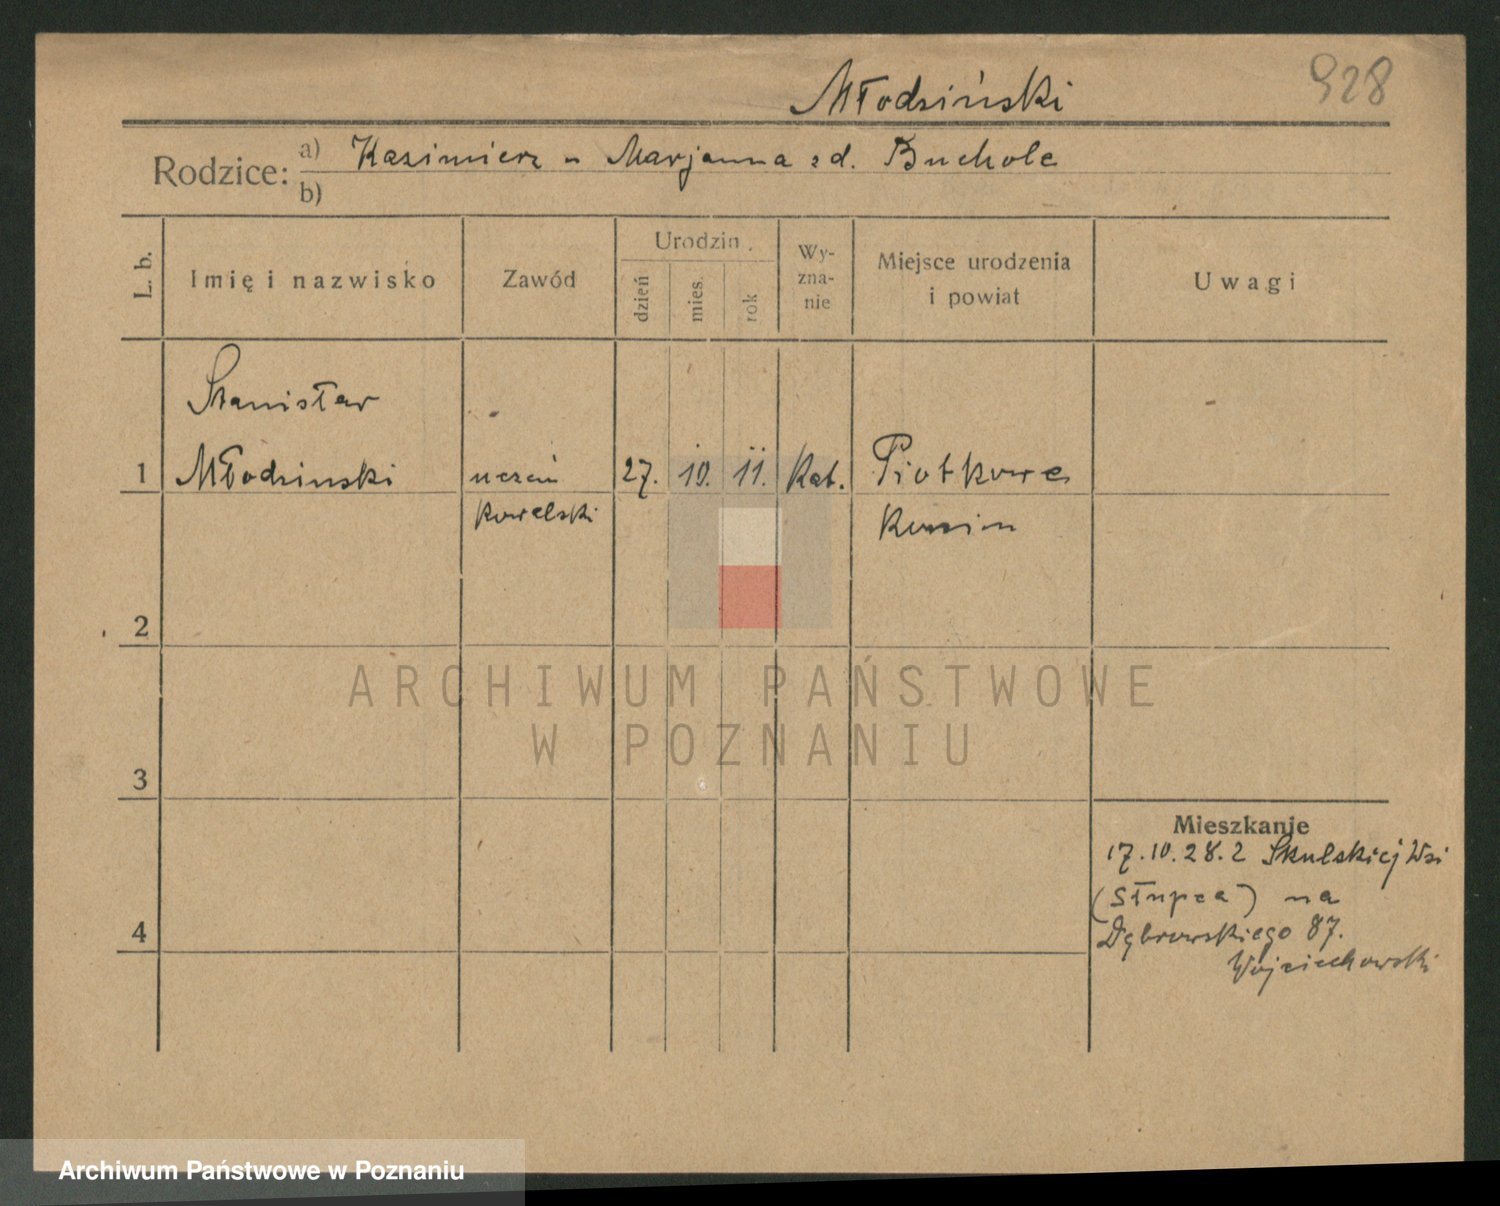 928
Młodziński
Rodzice: a) Kazimierz - Marjanna zd. Buchole
b)
L. b.
Imię i nazwisko
Zawód
Urodzin
dzień
mies.
rok
Wy-
zna-
nie
Miejsce urodzenia
i powiat
Uwagi
Stanisław
1 Młodzinski uczeń 27. 10. 11. Kat. Piotkowe
kowalski Konin
2
ARCHIWUM PAŃSTWOWE
W POZNANIU
3
Mieszkanie
17.10.28. z Skulskiej Wsi
(Słupca) na
4
Dąbrowskiego 87.
Wojciechowski
Archiwum Państwowe w Poznaniu